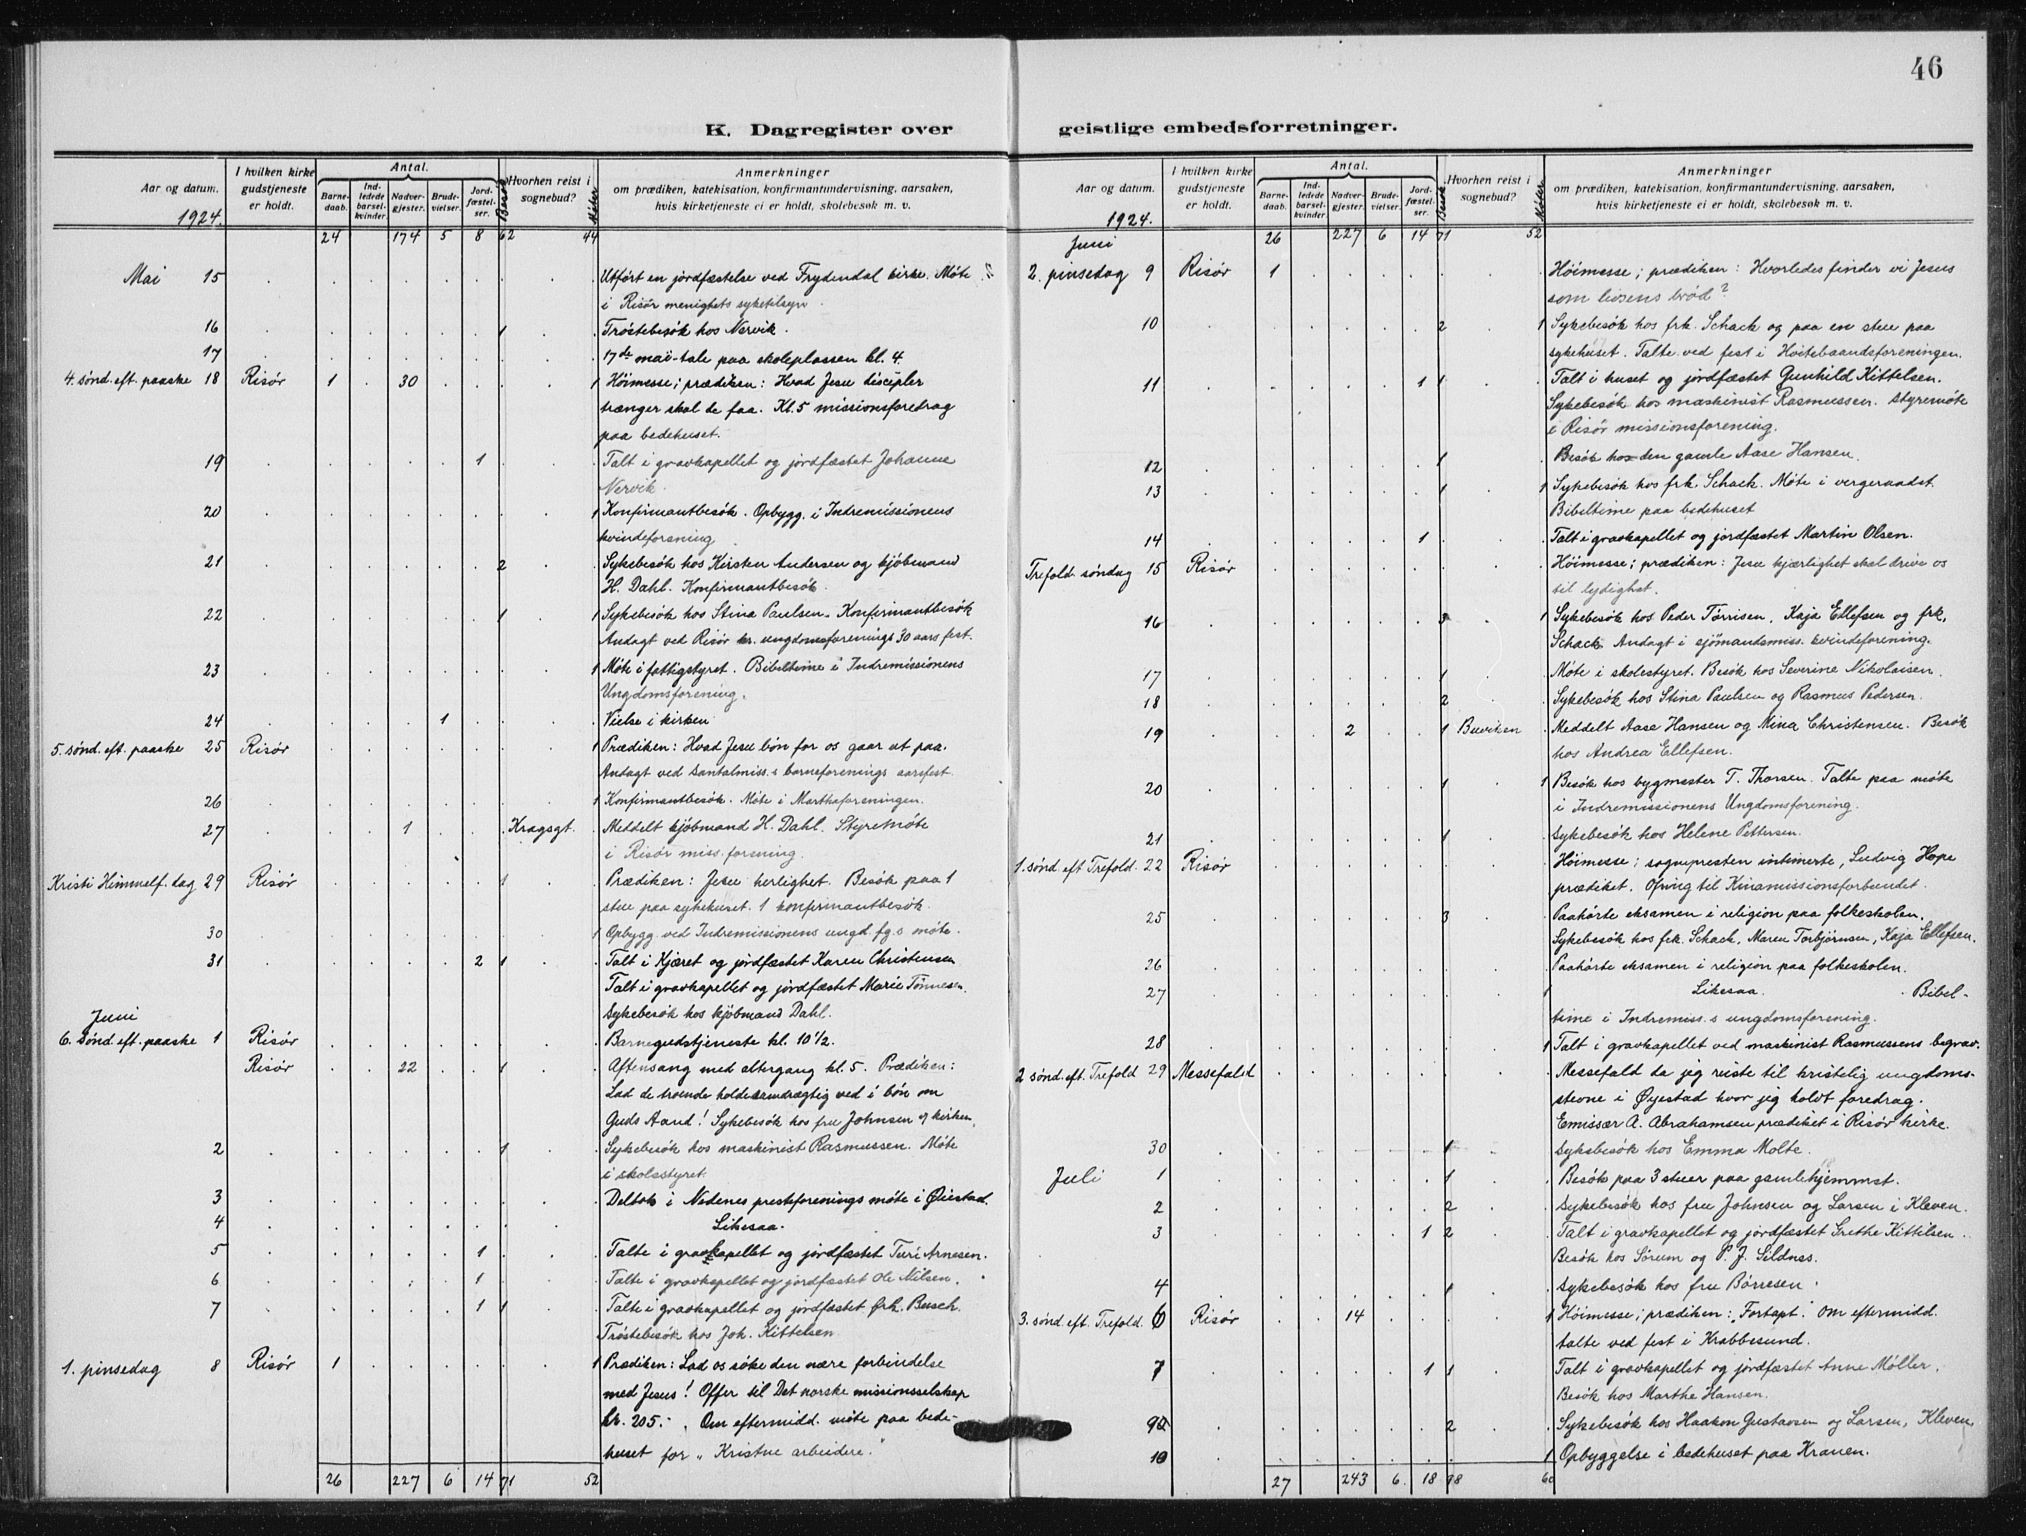 46
K. Dagregister over geistlige embedsforretninger.
Aar og datum. 1924.
I hvilken kirke gudstjeneste er holdt.
Antal.
Barnedaab.
Indledede barselkvinder.
Nadvergjester.
Brudevielser.
Jordfæstelser.
Besøk
Hvorhen reist i sognebud?
Møter
Anmerkninger
om prædiken, katekisation, konfirmantundervisning, aarsaken,
hvis kirketjeneste ei er holdt, skolebesøk m. v.
24 174 5 8 62 44
Mai 15 Utført en jordfæstelse ved Frydendal kirke. Møte
i Risør menighets syketilsyn.
16 1 Trøstebesøk hos Nervik.
17 17de mai-tale paa skoleplassen kl. 4
4. sønd. eft. paaske 18 Risør 1 30 1 Høimesse; prædiken: Hvad Jesu discipler
trænger skal de faa. Kl. 5 missionsforedrag
paa bedehuset.
19 1 Talt i gravkapellet og jordfæstet Johanne
Nervik.
20 1 Konfirmantbesøk. Opbygg. i Indremissionens
kvindeforening
21 2 Sykebesøk hos Kirsten Andersen og kjøbmand
H. Dahl. Konfirmantbesøk.
22 1 1 Sykebesøk hos Stina Paulsen. Konfirmantbesøk
Andagt ved Risør kr. ungdomsforenings 30 aars fest.
23 1 Møte i fattigstyret. Bibeltime i Indremissionens
Ungdomsforening.
24 1 Vielse i kirken
5. sønd. eft. paaske 25 Risør 1 Prædiken: Hvad Jesu bøn for os gaar ut paa.
Andagt ved Santalmiss.s barneforenings aarsfest.
26 1 Konfirmantbesøk. Møte i Marthaforeningen.
27 1 Kragsgt. Meddelt kjøbmand H. Dahl. Styremøte
i Risør miss. forening.
Kristi Himmelf. dag 29 Risør 1 Prædiken: Jesu herlighet. Besøk paa 1
stue paa sykehuset. 1 konfirmantbesøk.
30 1 Opbygg. ved Indremissionens ungd. fg.s møte.
31 2 1 Talt i Kjæret og jordfæstet Karen Christensen
Talt i gravkapellet og jordfæstet Marie Tønnesen.
Sykebesøk hos kjøbmand Dahl.
Juni
6. sønd. eft. paaske 1 Risør Barnegudstjeneste kl. 10 1/2.
Risør 22 1 Aftensang med altergang kl. 5. Prædiken:
Lad de troende holde endrægtig ved i bøn om
Guds Aand! Sykebesøk hos fru Johnsen v/ kirken
2 1 Sykebesøk hos maskinist Rasmussen. Møte
i skolestyret.
3 Deltok i Nedenes presteforenings møte i Øiestad.
4 Likesaa.
5 1 Talte i gravkapellet og jordfæstet Turi Arnesen.
6 1 Talte i gravkapellet og jordfæstet Ole Nilsen.
7 1 1 Talte i gravkapellet og jordfæstet frk. Busch.
Trøstebesøk hos Joh. Kittelsen.
1. pinsedag 8 Risør 1 1 Prædiken: Lad os søke den nære forbindelse
med Jesus! Offer til Det norske missionsselskap
kr. 205.-. Om eftermidd. møte paa bede-
huset for „Kristne arbeidere."
26 227 6 14 71 52
Aar og datum. 1924.
I hvilken kirke gudstjeneste er holdt.
Antal.
Barnedaab.
Indledede barselkvinder.
Nadvergjester.
Brudevielser.
Jordfæstelser.
Besøk
Hvorhen reist i sognebud?
Møter
Anmerkninger
om prædiken, katekisation, konfirmantundervisning, aarsaken,
hvis kirketjeneste ei er holdt, skolebesøk m. v.
26 227 6 14 71 52
Juni
2. pinsedag 9 Risør 1 Høimesse; prædiken: Hvorledes finder vi Jesus
som livsens brød?
10 2 1 Sykebesøk hos frk. Schack og paa en stue paa
sykehuset. Talte ved fest i Hvitebaandsforeningen.
11 1 1 Talt i huset og jordfæstet Gunhild Kittelsen.
Sykebesøk hos maskinist Rasmussen. Styremøte
i Risør missionsforening.
12 1 Besøk hos den gamle Aase Hansen.
13 1 1 Sykebesøk hos frk. Schack. Møte i vergeraadet.
Bibeltime paa bedehuset
14 1 Talt i gravkapellet og jordfæstet Martin Olsen.
Trefold. søndag 15 Risør Høimesse; prædiken: Jesu kjærlighet skal drive os
til lydighet.
16 3 1 Sykebesøk hos Peder Tørrisen, Kaja Ellefsen og frk.
Schack. Andagt i sjømandsmiss. kvindeforening.
17 1 Møte i skolestyret. Besøk hos Severine Nikolaisen.
18 2 Sykebesøk hos Stina Paulsen og Rasmus Pedersen.
19 2 1 Buviken Meddelt Aase Hansen og Mina Christensen. Besøk
hos Andrea Ellefsen.
20 1 1 Besøk hos bygmester T. Thorsen. Talte paa møte
i Indremissionens Ungdomsforening.
21 1 Sykebesøk hos Helene Pettersen.
1. sønd. eft Trefold. 22 Risør Høimesse; sognepresten intimerte, Ludvig Hope
prædiket. Ofring til Kinamissionsforbundet.
25 3 Paahørte eksamen i religion paa folkeskolen.
Sykebesøk hos frk. Schack, Maren Torbjørnsen, Kaja Ellefsen.
26 Paahørte eksamen i religion paa folkeskolen.
27 1 Likesaa. Bibel-
time i Indremiss.s ungdomsforening.
28 1 Talt i gravkapellet ved maskinist Rasmussens begrav.
2 sønd. eft. Trefold 29 Messefald Messefald da jeg reiste til kristelig ungdoms-
stevne i Øyestad hvor jeg holdt foredrag.
Emissær A. Abrahamsen prædiket i Risør kirke.
30 1 Sykebesøk hos Emma Molte.
Juli 1 1 Besøk paa 3 stuer paa gamlehjemmet.
2 2 Sykebesøk hos fru Johnsen og Larsen i Kleven.
3 1 2 Talt i gravkapellet og jordfæstet Grethe Kittilsen.
Besøk hos Sørum og P. J. Sildnes.
4 1 Sykebesøk hos fru Børresen.
3. sønd. eft. Trefold. 6 Risør 14 1 Høimesse; prædiken: „Fortapt." Om eftermidd.
talte ved fest i Krabbesund.
7 1 1 Talt i gravkapellet og jordfæstet Anne Møller.
Besøk hos Marthe Hansen.
9 2 Sykebesøk hos Haakon Gustavsen og Larsen, Kleven
10 1 Opbyggelse i bedehuset paa Kranen.
27 243 6 18 98 60